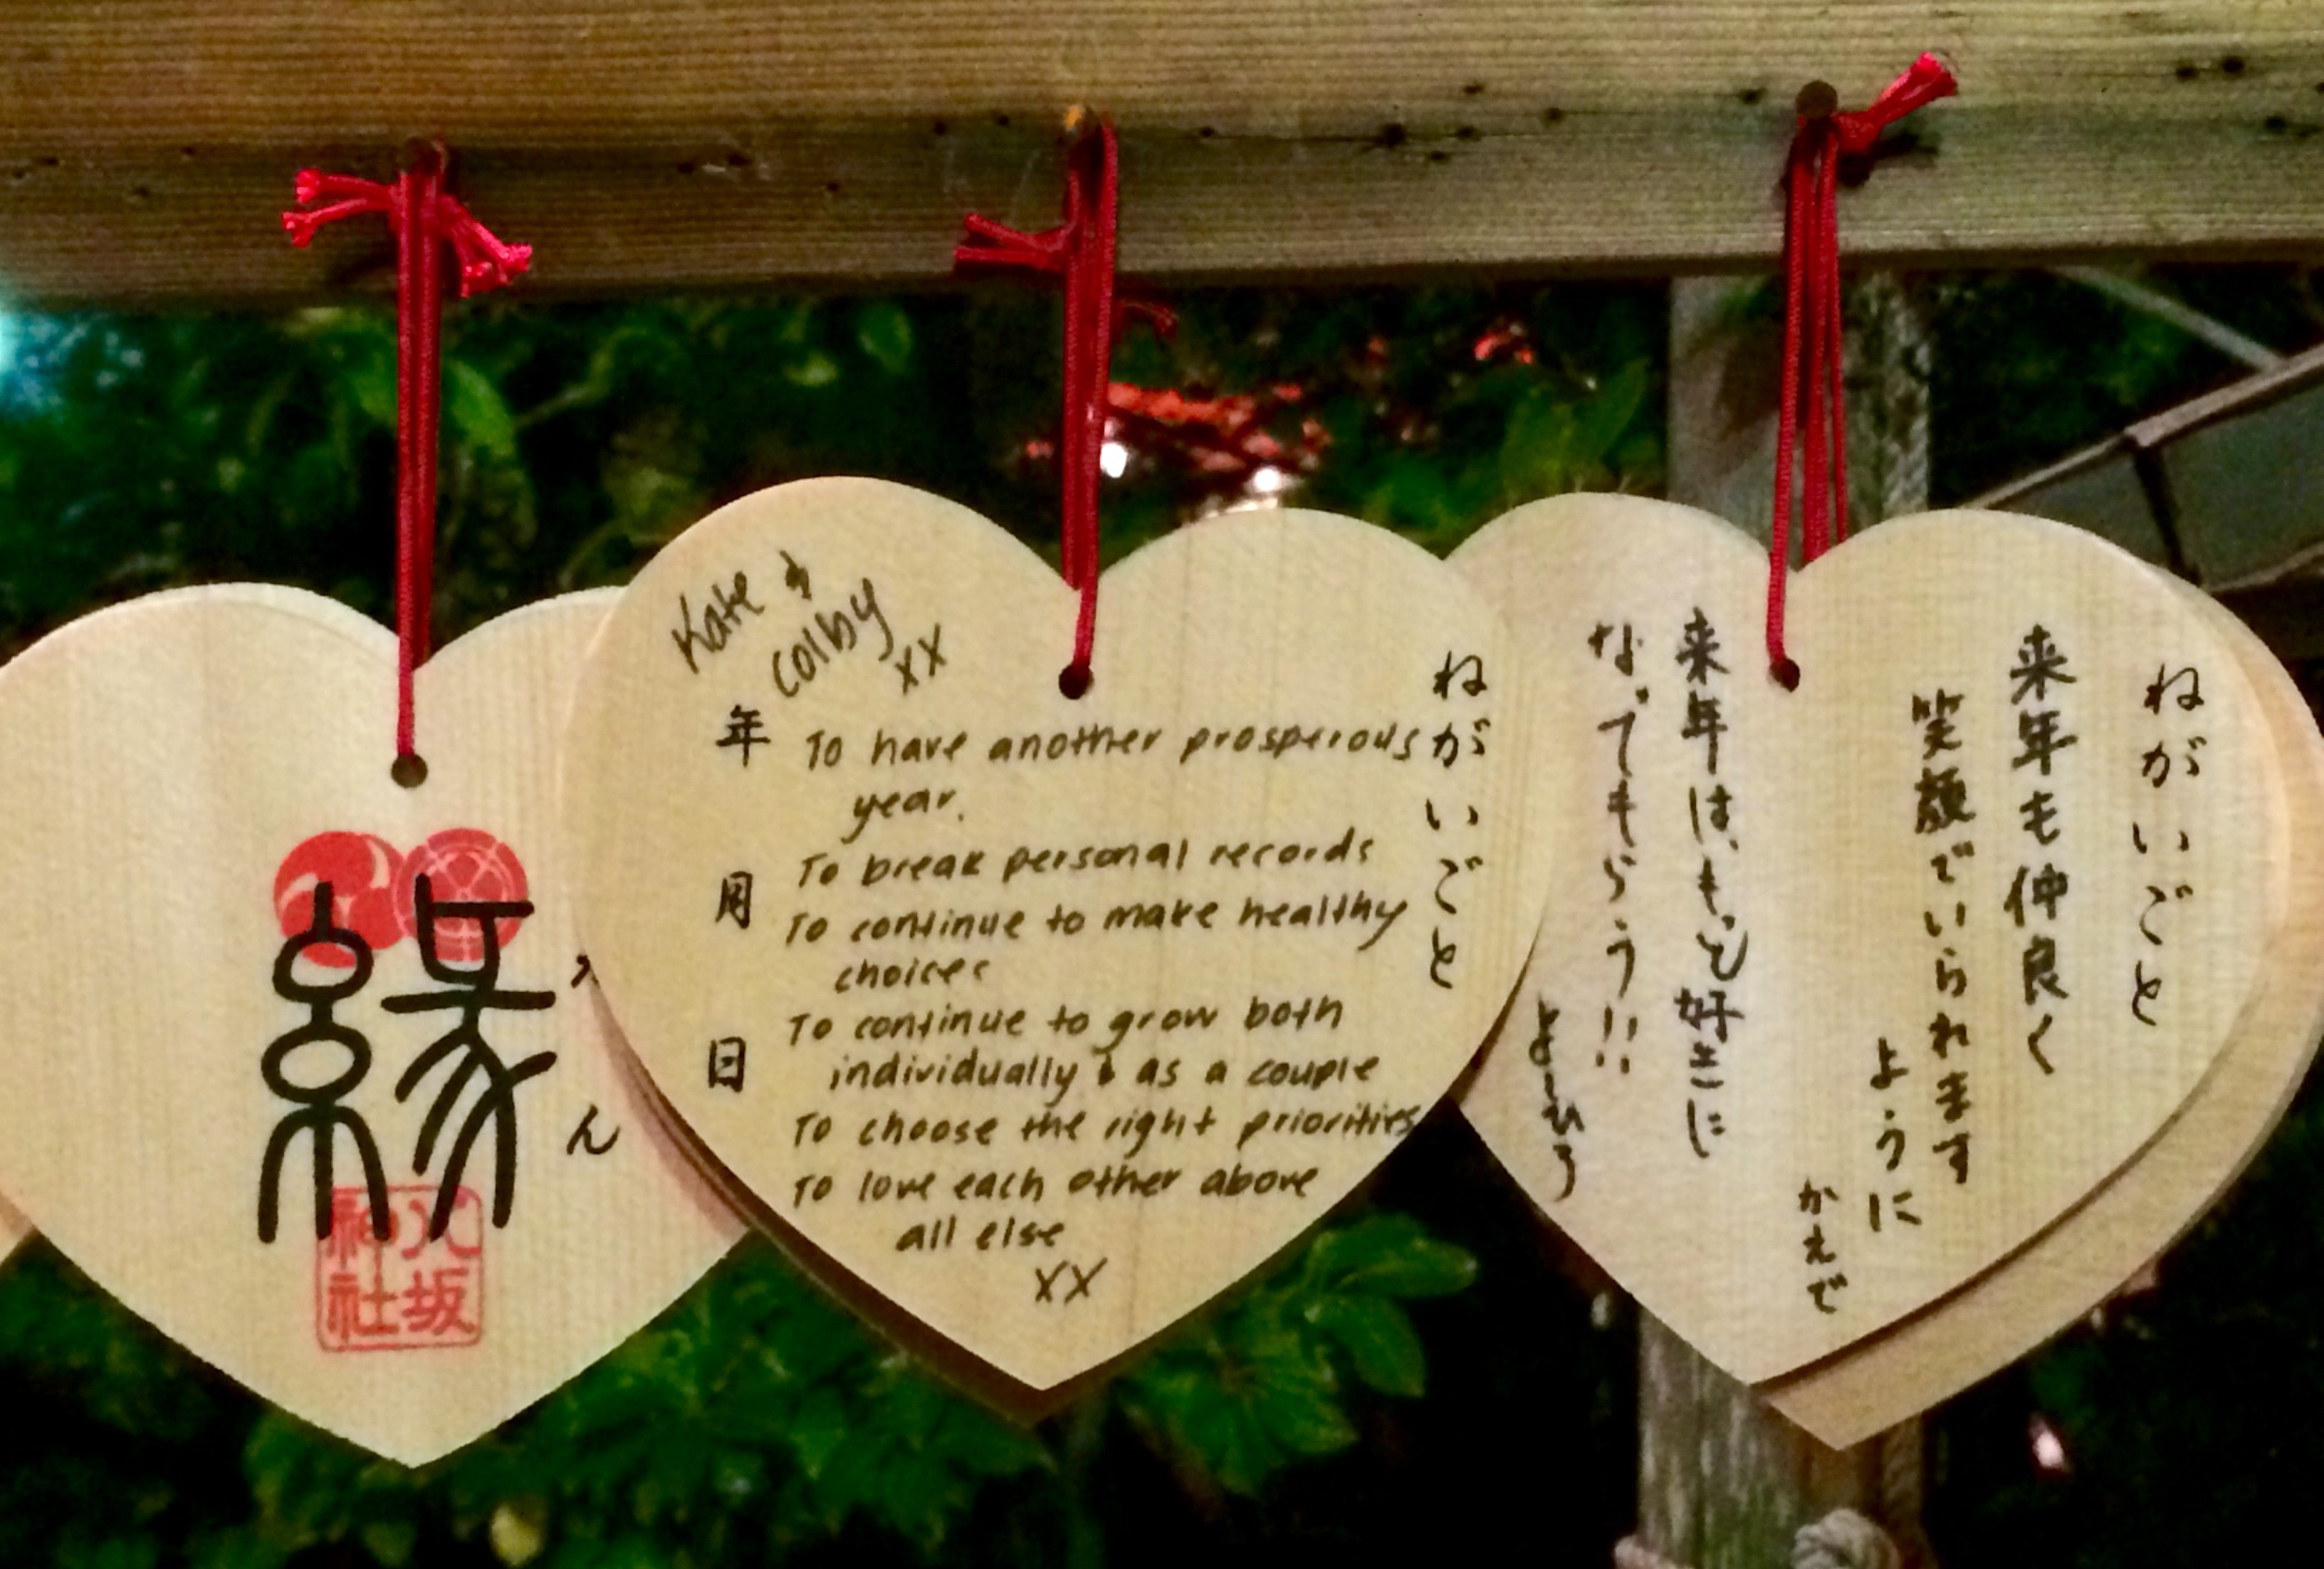 縁
ん
八坂
神社
Kate &
Colby
XX
年
月
日
ねがいごと
To have another prosperous
year.
To break personal records
To continue to make healthy
choices
To continue to grow both
individually & as a couple
To choose the right priorities
To love each other above
all else
XX
ねがいごと
来年も仲良く
笑顔でいられます
ように
かえで
来年は、もっと好きに
なってもらう!!